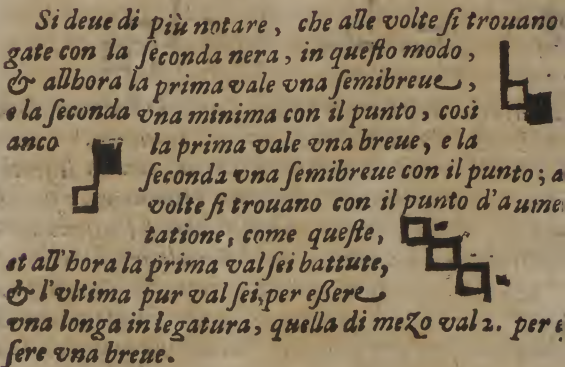 Si deue di più notare, che alle volte ſi trouano
gate con la ſeconda nera, in queſto modo,
& allhora la prima vale vna ſemibreue,
e la ſeconda vna minima con il punto, così
anco la prima vale vna breue, e la
ſeconda vna ſemibreue con il punto; a
volte ſi trouano con il punto d'aume
tatione, come queſte,
et all'hora la prima val ſei battute,
& l'vltima pur val ſei, per eßere
vna longa in legatura, quella di meZo val 2. per e
ſere vna breue.